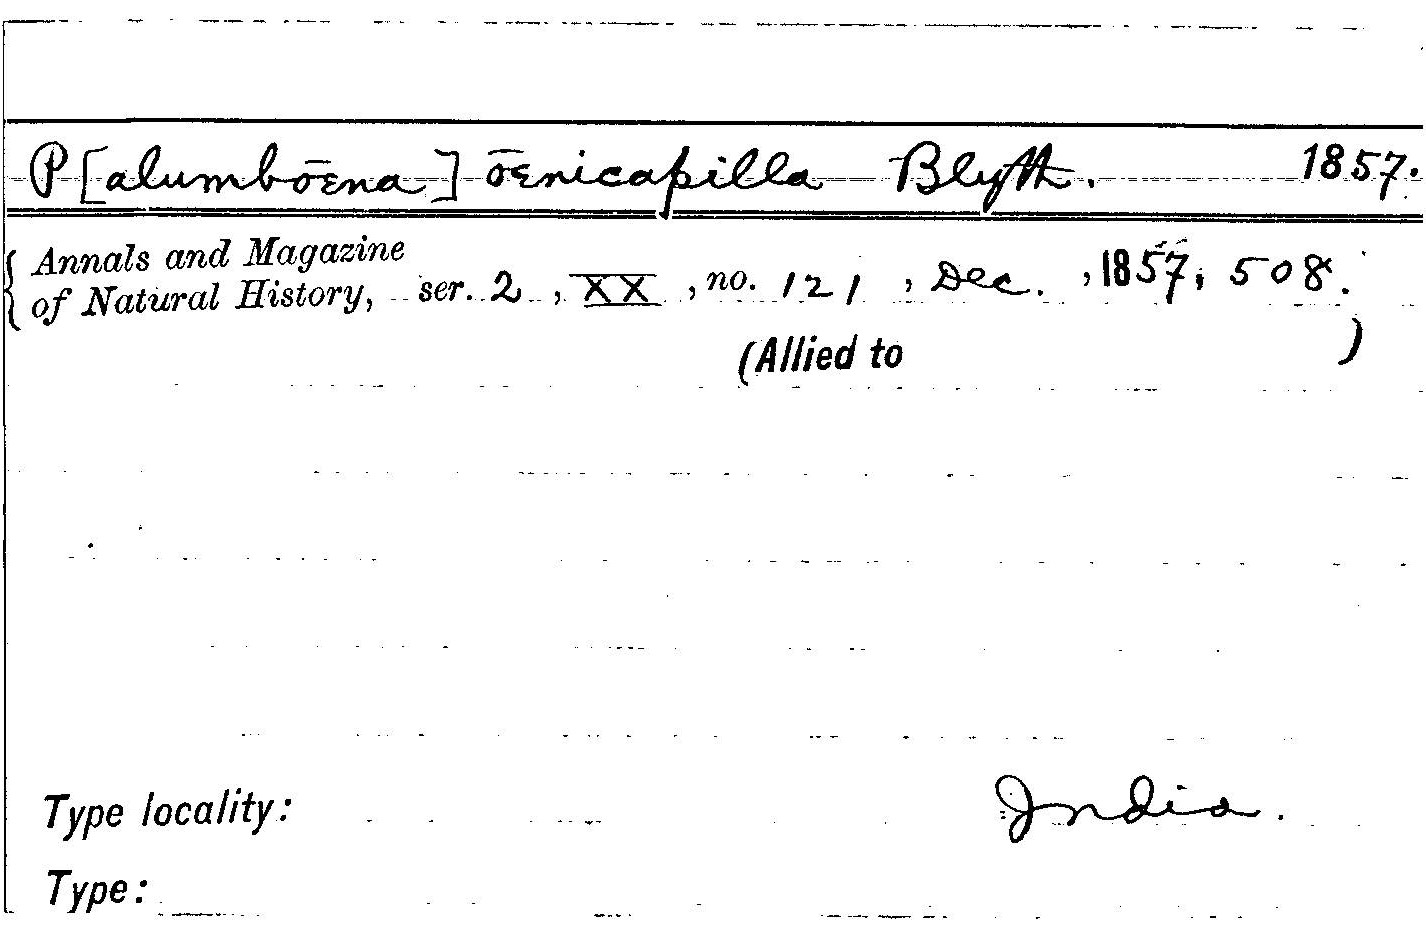 P[alumbōena] ōenicapilla Blyth. 1857.
{ Annals and Magazine
of Natural History, ser. 2, XX, no. 121, Dec., 1857, 508.
(Allied to )
Type locality: India.
Type: